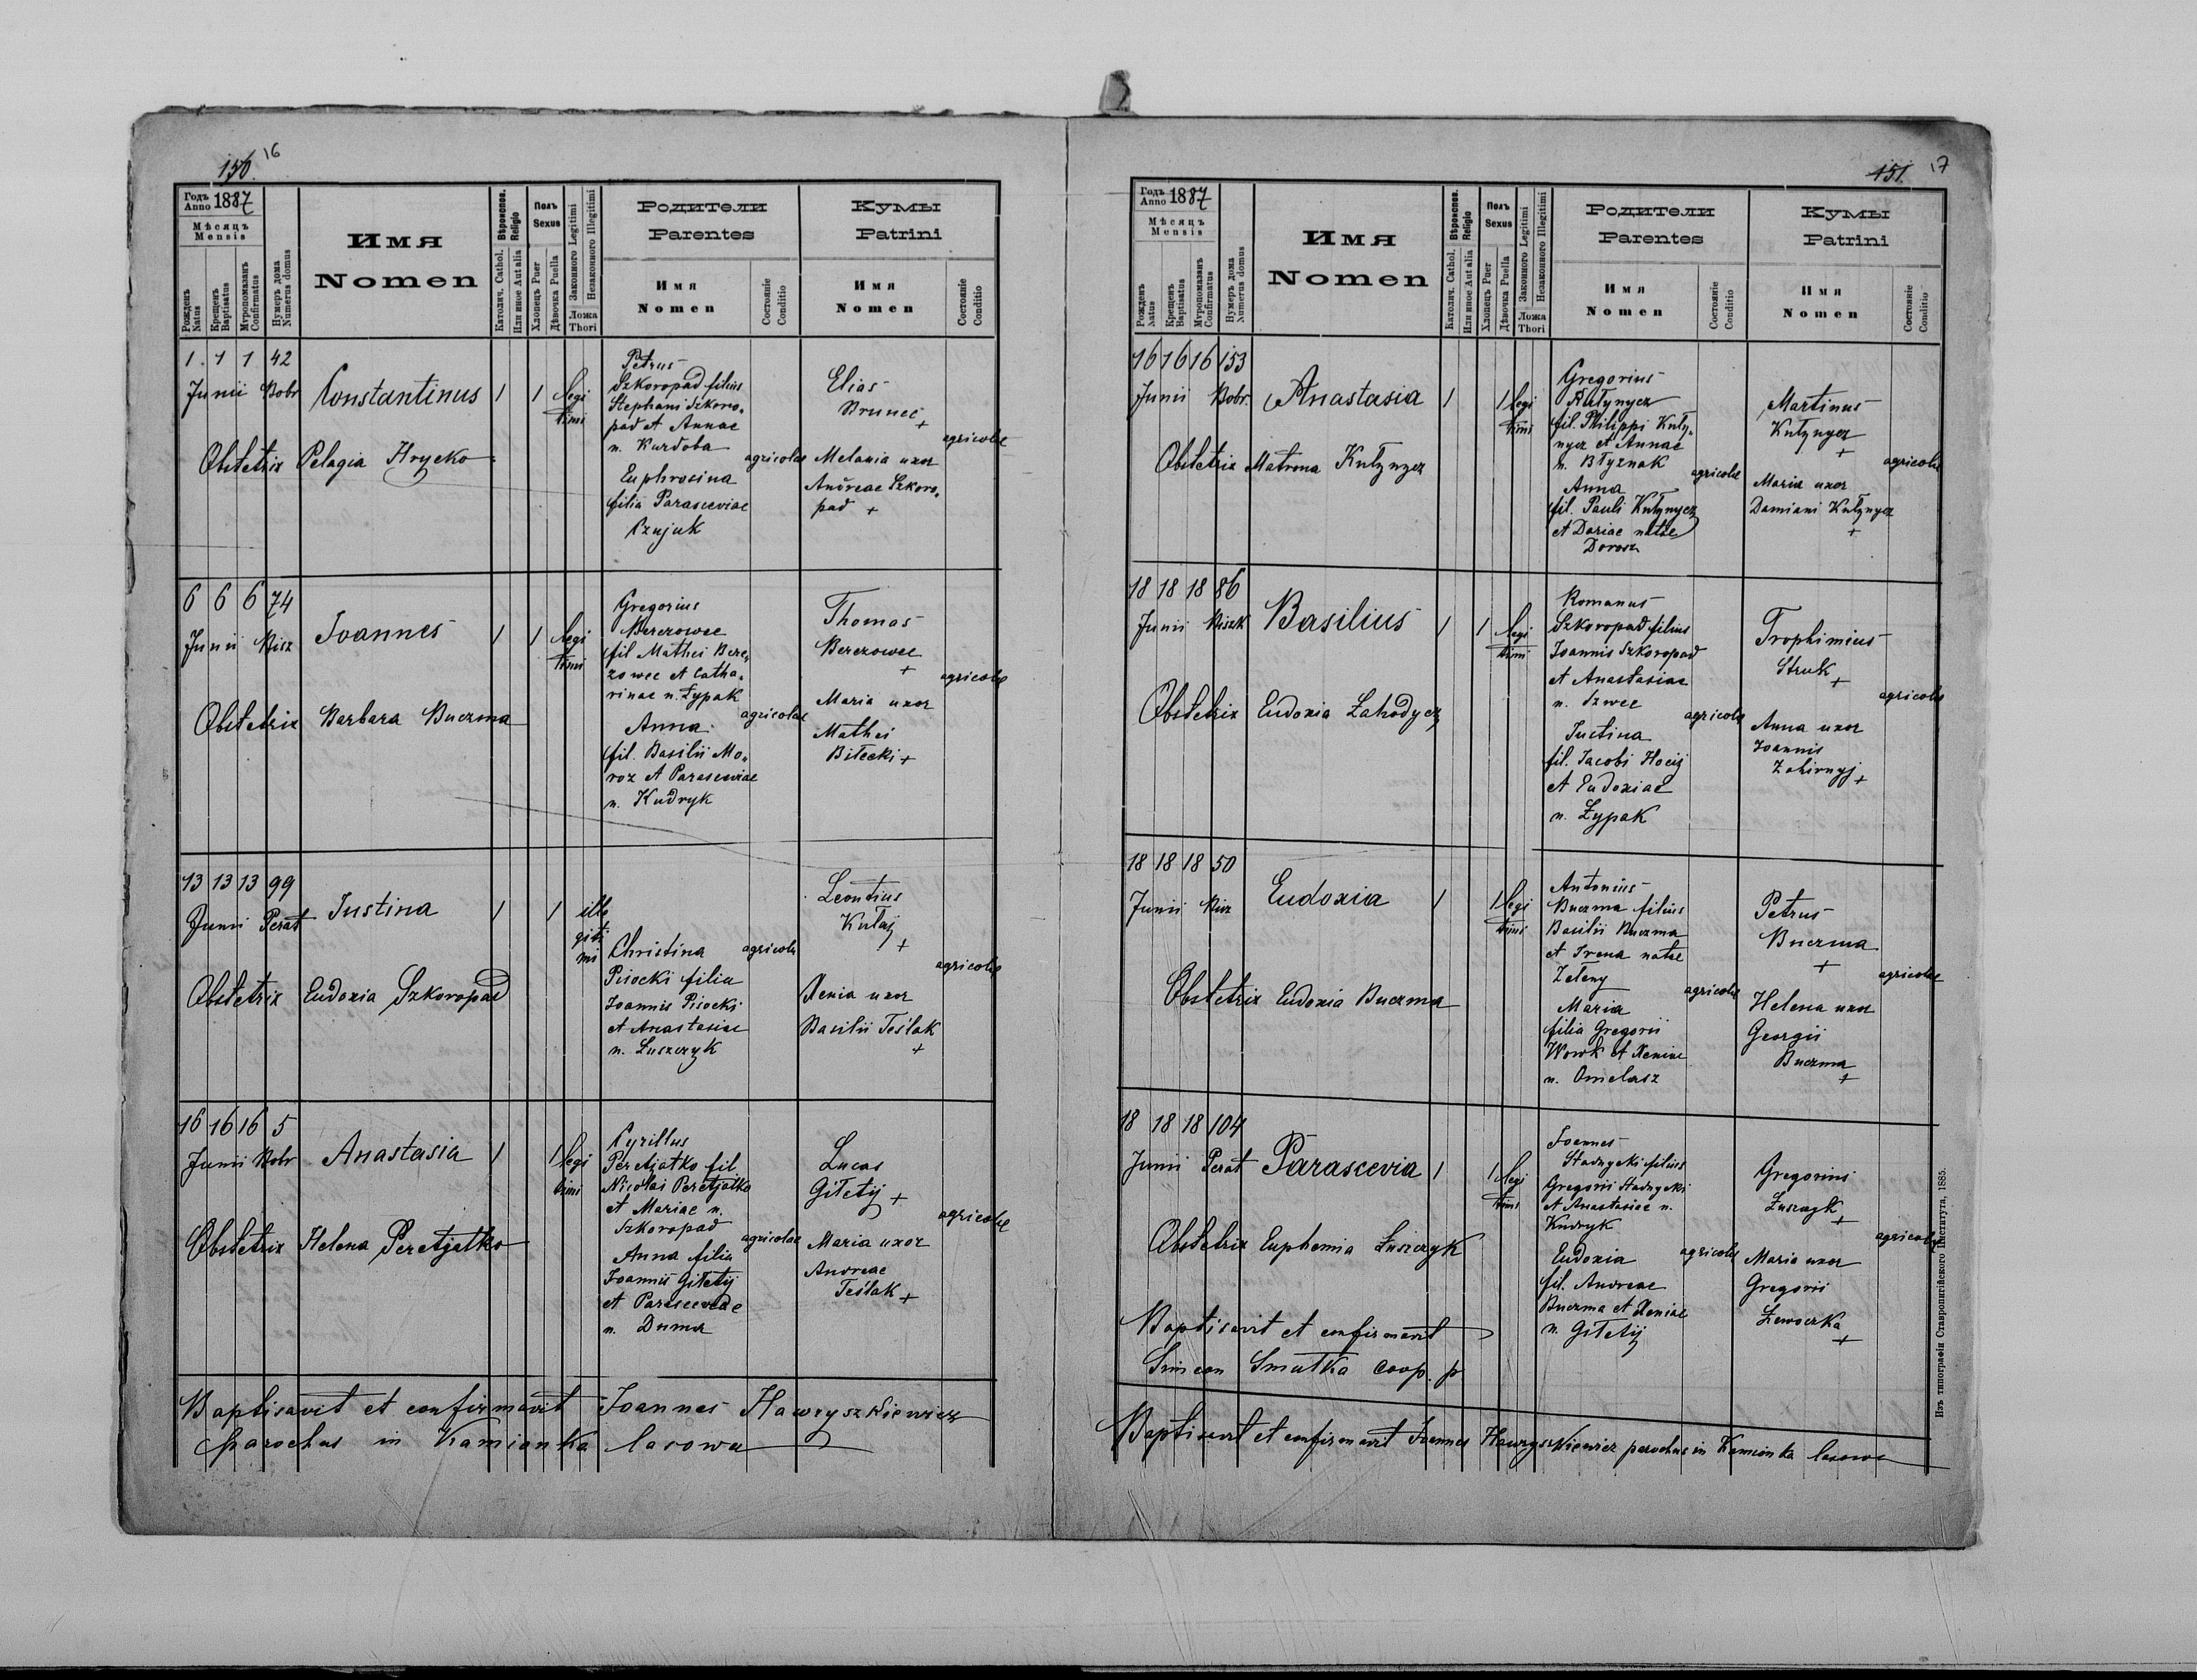 150. 16
Годъ Anno 1887
Мѣсяцъ Mensis
Рожденъ Natus
Крещенъ Baptisatus
Мѵропомазанъ Confirmatus
Нумеръ дома Numerus domus
Имя
Nomen
Вѣроиспов. Religio
Католич. Cathol.
Или иное Aut alia
Полъ Sexus
Хлопецъ Puer
Дѣвочка Puella
Законного Legitimi
Незаконного Illegitimi
Ложа Thori
Родители
Parentes
Имя
Nomen
Состояніе Conditio
Кумы
Patrini
Имя
Nomen
Состояніе Conditio
1. 1 1 42
Junii Bobr
Constantinus 1 1 legi
timi
Obstetrix Pelagia Hrycko
Petrus
Szkoropad filius
Stephani Szkoro-
pad et Annae
n. Kurdoba
agricolae
Euphrosina
filia Parasceviae
Czujuk
Elias
Brunec
+
Melania uxor
Andreae Szkoro-
pad +
agricolae
6 6 6 74
Junii Bisz
Joannes 1 1 legi
timi
Obstetrix Barbara Buczma
Gregorius
Berezowec
fil Mathei Bere-
zowec et Catha-
rinae n. Łypak
agricolae
Anna
fil. Basilii Mo-
roz et Parasceviae
n. Kudryk
Thomas
Berezowec
+
Maria uxor
Mathei
Biłecki +
agricolae
13 13 13 99
Junii Perat
Justina 1 1 ille
giti
mi
Obstetrix Eudoxia Szkoropad
Christina
agricola
Pisocki filia
Joannis Pisocki
et Anastasiae
n. Łuszczyk
Leontius
Kułaj
+
Xenia uxor
Basilii Teślak
+
agricolae
16 16 16 5
Junii Bobr
Anastasia 1 1 legi
timi
Obstetrix Helena Peretjatko
Cyrillus
Peretjatko fil.
Nicolai Peretjatko
et Mariae n.
Szkoropad
agricolae
Anna filia
Joannis Giłetij
et Parasceviae
n. Duma
Lucas
Giłetij +
Maria uxor
Andreae
Teślak +
agricolae
Baptisavit et confirmavit Joannes Hawryszkiewicz
parochus in Kamionka lasowa
151. 17
Годъ Anno 1887
Мѣсяцъ Mensis
Рожденъ Natus
Крещенъ Baptisatus
Мѵропомазанъ Confirmatus
Нумеръ дома Numerus domus
Имя
Nomen
Вѣроиспов. Religio
Католич. Cathol.
Или иное Aut alia
Полъ Sexus
Хлопецъ Puer
Дѣвочка Puella
Законного Legitimi
Незаконного Illegitimi
Ложа Thori
Родители
Parentes
Имя
Nomen
Состояніе Conditio
Кумы
Patrini
Имя
Nomen
Состояніе Conditio
16 16 16 153
Junii Bobr.
Anastasia 1 1 legi
timi
Obstetrix Matrona Kułynycz
Gregorius
Kułynycz
fil. Philippi Kuły-
nycz et Annae
n. Błyznak
agricolae
Anna
fil. Pauli Kułynycz
et Dariae natae
Dorosz
Martinus
Kułynycz
+
Maria uxor
Damiani Kułynycz
+
agricolae
18 18 18 86
Junii
Basilius 1 1 legi
timi
Obstetrix Eudoxia Zahodycz
Romanus
Szkoropad filius
Joannis Szkoropad
et Anastasiae
n. Szwec
agricolae
Justina
fil. Jacobi Hocij
et Eudoxiae
n. Łypak
Trophimius
Struk
+
Anna uxor
Joannis
Zahirnyj
+
agricolae
18 18 18 50
Junii Bisz
Eudoxia 1 1 legi
timi
Obstetrix Eudoxia Buczma
Antonius
Buczma filius
Basilii Buczma
et Irena natae
Zełeny
agricolae
Maria
filia Gregorii
Wowk et Xeniae
n. Omelasz
Petrus
Buczma
+
Helena uxor
Georgii
Buczma
+
agricolae
18 18 18 104
Junii Perat
Parascevia 1 1 legi
timi
Obstetrix Euphemia Łuszczyk
Joannes
Stadnycki filius
Gregorii Stadnycki
et Anastasiae n.
Kudryk
agricolae
Eudoxia
fil. Andreae
Buczma et Xeniae
n. Giłetij
Gregorius
Łuszczyk
+
Maria uxor
Gregorii
Łewoczka
+
agricolae
Baptisavit et confirmavit
Simeon Smutka coop. p
Baptisavit et confirmavit Joannes Hawryszkiewicz parochus in Kamionka lasowa
Изъ типографіи Ставропигійского Института, 1885.